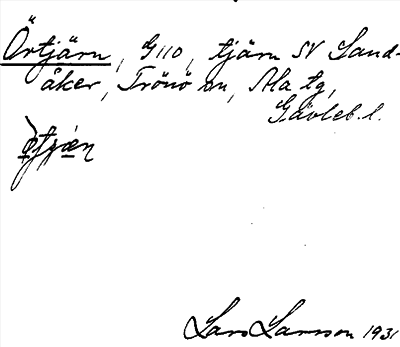 Örtjärn, G110, tjärn SV Sand-
åker, Trönö sn, Ala tg,
Gävleb. l.
Lars Larsson 1931